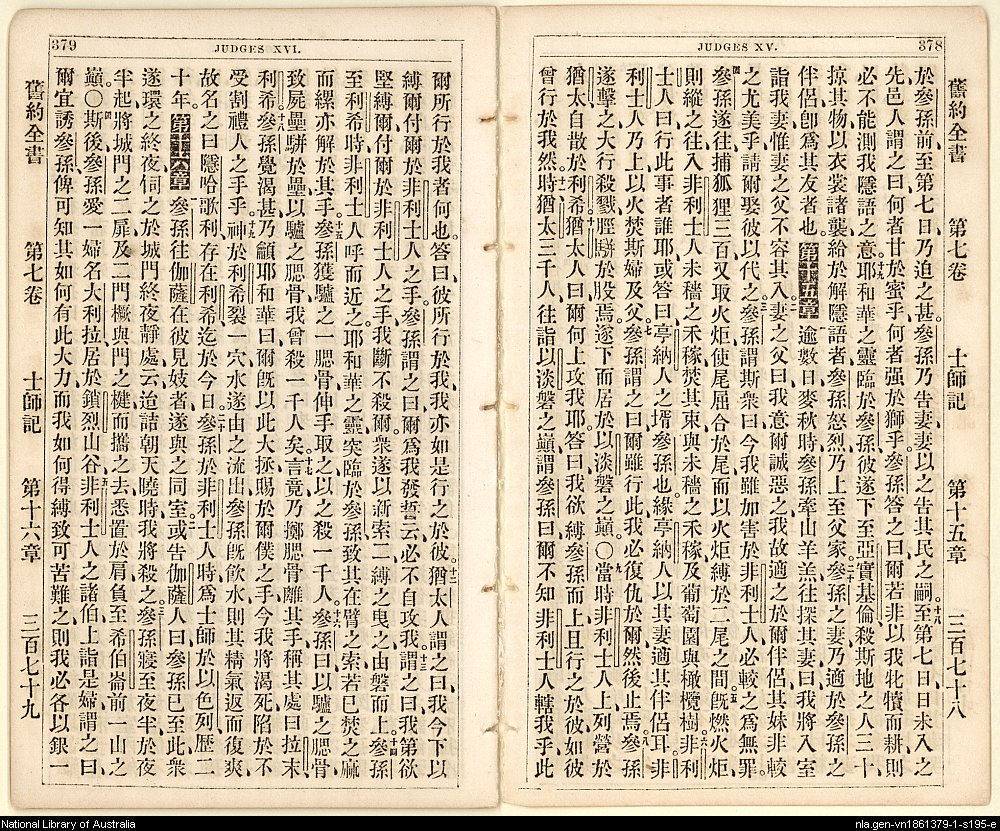 378
JUDGES XV.
舊約全書 第七卷 士師記 第十五章 三百七十八
於參孫前、至第七日乃迫之甚。參孫乃告妻、妻以之告其民之嗣。十八至第七日日未入之
先、邑人謂之曰、何者甘於蜜乎、何者强於獅乎。參孫答之曰、爾若非以我牝犢而耕、則
必不能測我隱語之意。十九耶和華之靈臨於參孫、彼遂下至亞實基倫、殺斯地之人三十、
掠其物以衣裳諸襲給於解隱語者、參孫怒烈、乃上至父家。二十參孫之妻、乃適於參孫之
伴侶、卽爲其友者也。第十五章 一逾數日、麥秋時、參孫牽山羊羔往探其妻、曰、我將入室
詣我妻、惟妻之父不容其入、二妻之父曰、我意爾誠惡之、我故適之於爾伴侶、其妹非較
之尤美乎、請爾娶彼以代之。三參孫謂斯衆曰、今我雖加害於非利士人、必較之爲無罪。
四參孫遂往捕狐狸三百、又取火炬、使尾屈合於尾、而以火炬縛於二尾之間、五旣燃火炬、
則縱之往入非利士人未穡之禾稼、焚其束與未穡之禾稼及葡萄園與橄欖樹。六非利
士人曰、行此事者誰耶、或答曰、亭納人之壻參孫也、緣亭納人以其妻適其伴侶耳。非
利士人乃上以火焚斯婦及父。七參孫謂之曰、爾雖行此、我必復仇於爾、然後止焉。八參孫
遂擊之大行殺戮、脛騈於股焉、遂下而居於以淡磐之巔。〇九當時非利士人上列營於
猶太自散於利希。十猶太人曰、爾何上攻我耶、答曰、我欲縛參孫而上、且行之於彼、如彼
曾行於我然。十一時猶太三千人、往詣以淡磐之巔、謂參孫曰、爾不知非利士人轄我乎、此
379
JUDGES XVI.
爾所行於我者何也。答曰、彼所行於我、我亦如是行之於彼。十二猶太人謂之曰、我今下以
縛爾付爾於非利士人之手。參孫謂之曰、爾爲我發誓、云、必不自攻我。十三謂之曰、我第欲
堅縛爾、付爾於非利士人之手、我斷不殺爾、衆遂以新索二縛之、曳之由磐而上。十四參孫
至利希時、非利士人呼而近之、耶和華之靈突臨於參孫、致其在臂之索若已焚之麻、
而縲亦解於其手。十五參孫獲驢之一腮骨、伸手取之、以之殺一千人。十六參孫曰、以驢之腮骨、
致屍壘騈於壘、以驢之腮骨、我曾殺一千人矣。十七言竟、乃擲腮骨離其手、稱其處曰拉末
利希。十八參孫覺渴甚、乃籲耶和華曰、爾旣以此大拯賜於爾僕之手、今我將渴死陷於不
受割禮人之手乎。十九神於利希裂一穴、水遂由之流出、參孫旣飲水、則其精氣返而復爽、
故名之曰隱哈歌利、存在利希迄於今日。二十參孫於非利士人時爲士師於以色列、歷二
十年。第十六章 一參孫往伽薩、在彼見妓者、遂與之同室。二或告伽薩人曰、參孫已至此、衆
遂環之、終夜伺之於城門、終夜靜處、云、迨詰朝天曉時我將殺之。三參孫寢至夜半、於夜
半起、將城門之二扉及二門橛與門之楗而攜之去、悉置於肩負至希伯崙前一山之
巔。〇四斯後參孫愛一婦、名大利拉、居於鎖烈山谷。五非利士人之諸伯上詣是婦、謂之曰、
爾宜誘參孫、俾可知其如何有此大力、而我如何得縛致可苦難之、則我必各以銀一
舊約全書 第七卷 士師記 第十六章 三百七十九
National Library of Australia
nla.gen-vn1861379-1-s195-e